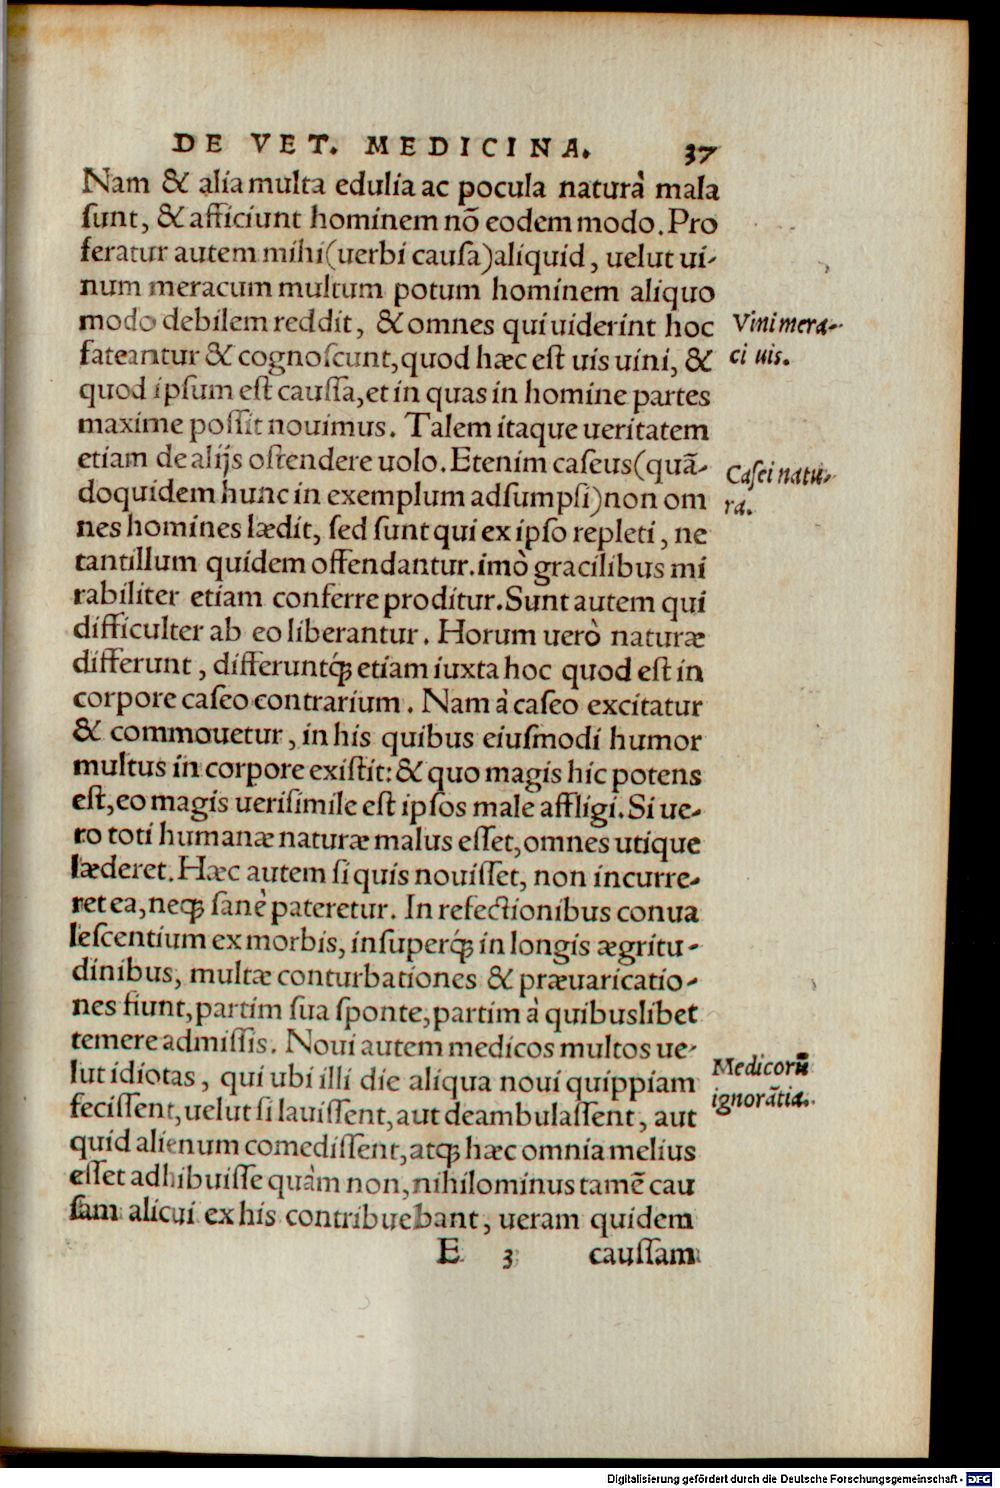 DE VET. MEDICINA. 37
Nam & alia multa edulia ac pocula naturà mala
sunt, & afficiunt hominem nõ eodem modo. Pro
feratur autem mihi (uerbi causa) aliquid, uelut ui-
num meracum multum potum hominem aliquo
modo debilem reddit, & omnes qui uiderint hoc
fateantur & cognoscunt, quod hæc est uis uini, &
quod ipsum est caussa, et in quas in homine partes
maxime possit nouimus. Talem itaque ueritatem
etiam de alijs ostendere uolo. Etenim caseus (quã-
doquidem hunc in exemplum adsumpsi) non om
nes homines lædit, sed sunt qui ex ipso repleti, ne
tantillum quidem offendantur. imò gracilibus mi
rabiliter etiam conferre proditur. Sunt autem qui
difficulter ab eo liberantur. Horum uerò naturæ
differunt, differuntq́; etiam iuxta hoc quod est in
corpore caseo contrarium. Nam à caseo excitatur
& commouetur, in his quibus eiusmodi humor
multus in corpore existit: & quo magis hic potens
est, eo magis uerisimile est ipsos male affligi. Si ue-
ro toti humanæ naturæ malus esset, omnes utique
læderet. Hæc autem si quis nouisset, non incurre-
ret ea, neq; sanè pateretur. In refectionibus conua
lescentium ex morbis, insuperq́; in longis ægritu-
dinibus, multæ conturbationes & præuaricatio-
nes fiunt, partim sua sponte, partim à quibuslibet
temere admissis. Noui autem medicos multos ue-
lut idiotas, qui ubi illi die aliqua noui quippiam
fecissent, uelut si lauissent, aut deambulassent, aut
quid alienum comedissent, atq; hæc omnia melius
esset adhibuisse quàm non, nihilominus tamẽ cau
sam alicui ex his contribuebant, ueram quidem
E 3 caussam
Vini mera-
ci uis.
Casei natu-
ra.
Medicorũ
ignorãtia.
Digitalisierung gefördert durch die Deutsche Forschungsgemeinschaft - DFG